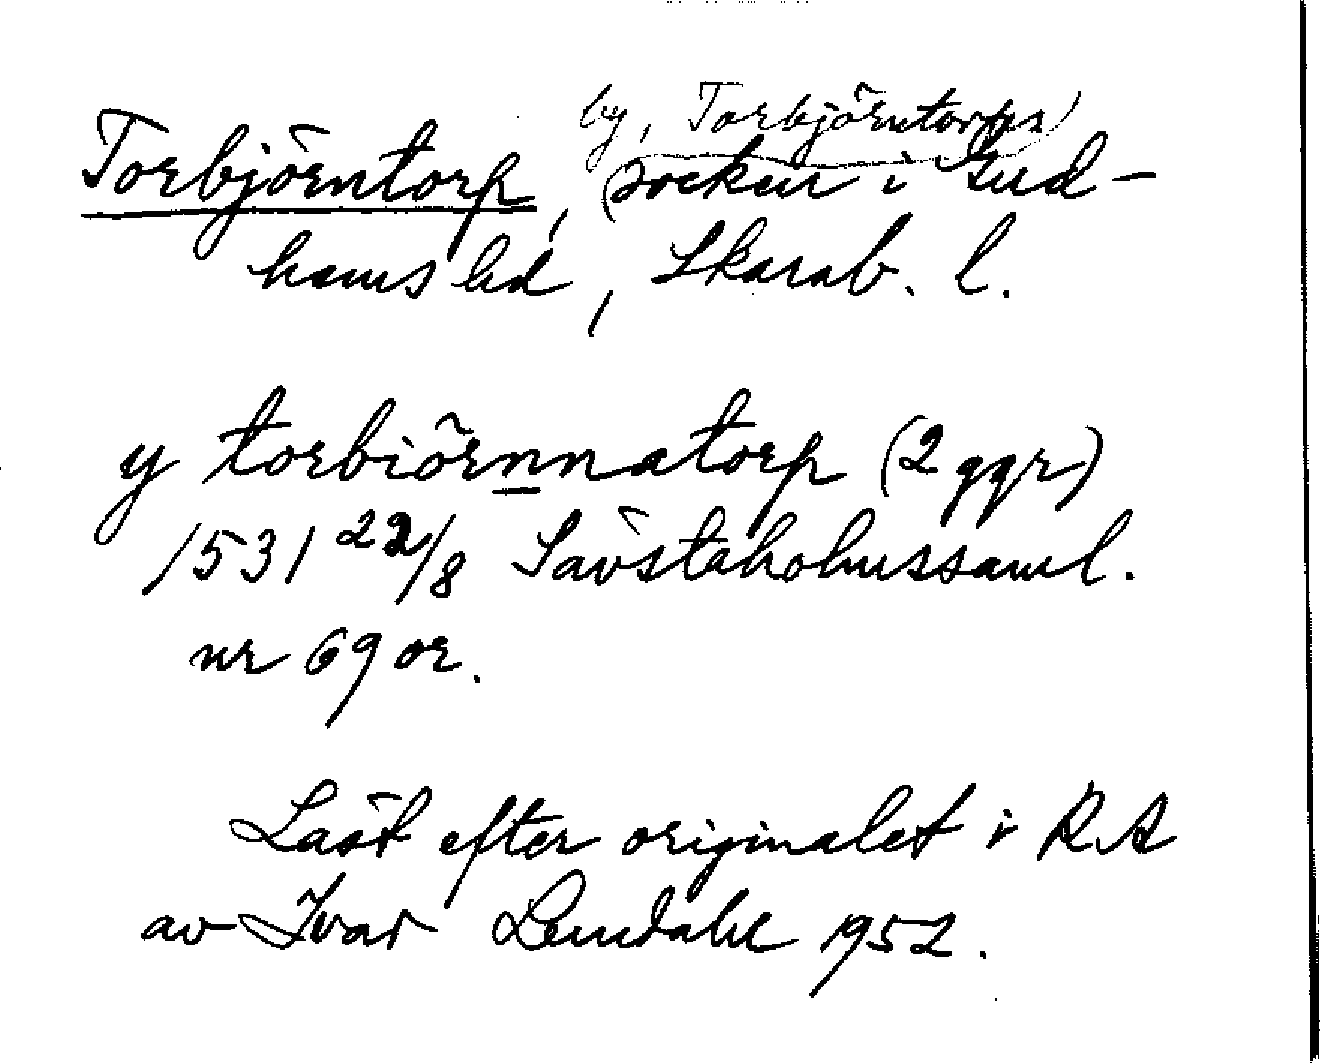 by, Torbjörntorps
Torbjörntorp, socken i Gud-
hems hd, Skarab. l.
y torbiörnnatorp (2 ggr)
1531 22/8 Sävstaholmssaml.
nr 69 or.
Läst efter originalet i RA
av Ivar Lundahl 1952.